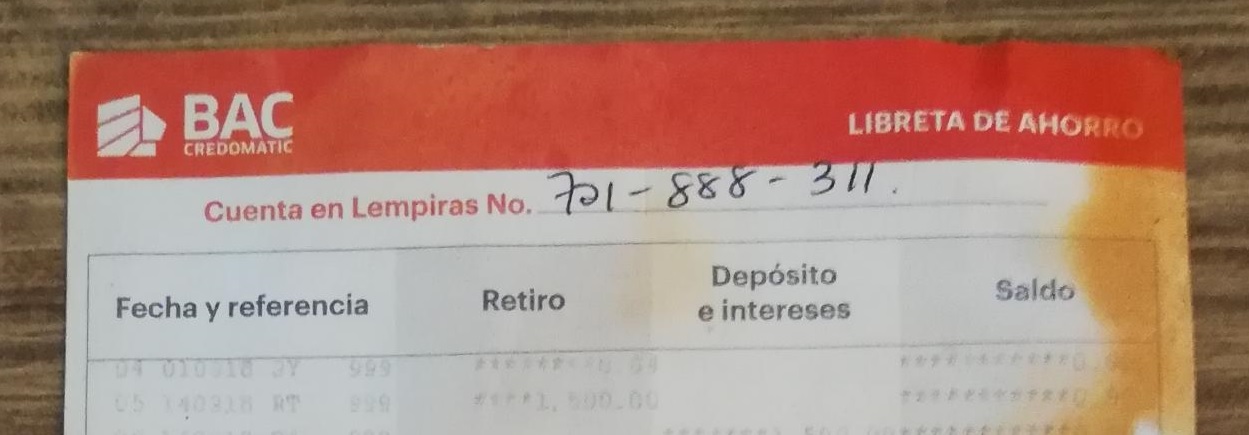 BAC
CREDOMATIC
LIBRETA DE AHORRO
Cuenta en Lempiras No. 701-888-311.
Fecha y referencia Retiro Depósito e intereses Saldo
999
05 140318 RT 999 ****1,500.00